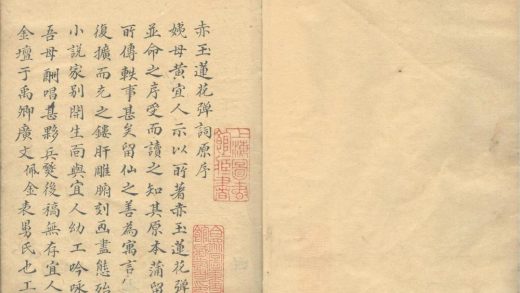 赤玉蓮花彈詞原序
姨母黃宜人示以所著赤玉蓮花彈
並命之序受而讀之知其原本蒲留
所傳軼事甚矣留仙之善為寓言
復擴而充之鏤肝雕腑刻画盡態殆
小說家別開生面與宜人幼工吟咏
吾母酬唱甚夥兵燹後稿無存宜人
金壇于禹卿廣文佩金表男氏也工
上海圖書館藏書